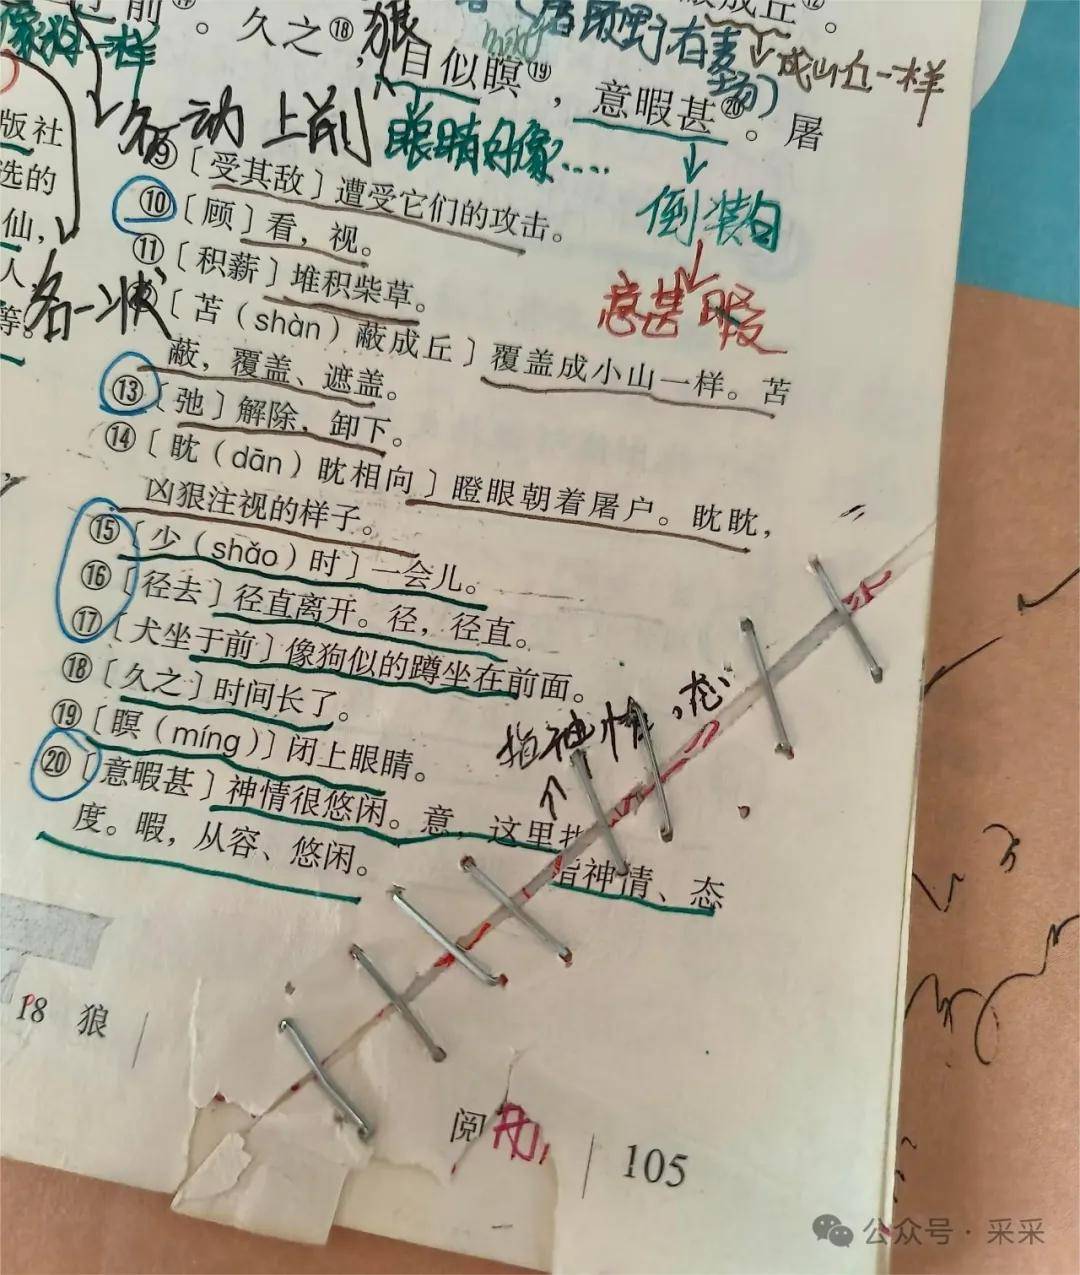 成丘
前⑰。久之⑱,狼
(屠顾野有麦场)
成山丘一样
像狗一样
目似瞑⑲,意暇甚⑳。屠
眼睛好像....
倒装句
意甚暇
版社
选的
仙,
人
等。
⑨〔受其敌〕遭受它们的攻击。
⑩〔顾〕看,视。
⑪〔积薪〕堆积柴草。
〔苫(shàn)蔽成丘〕覆盖成小山一样。苫
蔽,覆盖、遮盖。
⑬〔弛〕解除,卸下。
⑭〔眈(dān)眈相向〕瞪眼朝着屠户。眈眈,
凶狠注视的样子。
⑮〔少(shǎo)时〕一会儿。
⑯〔径去〕径直离开。径,径直。
⑰〔犬坐于前〕像狗似的蹲坐在前面。
⑱〔久之〕时间长了。
⑲〔瞑(míng)〕闭上眼睛。
⑳〔意暇甚〕神情很悠闲。意,这里指神情、态
度。暇,从容、悠闲。
指神情、态
18 狼
阅
105
公众号·采采